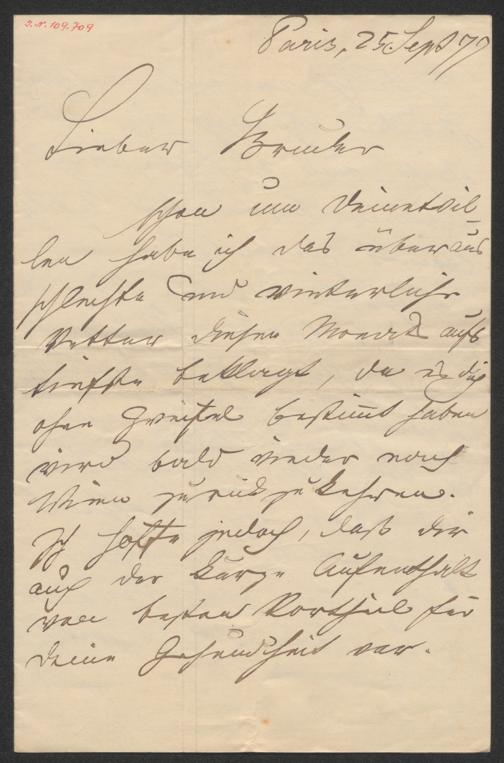 I.N. 109.709
Paris, 25 Sept 77
Lieber Bruder
schon um Deinetwil-
len habe ich das überaus
schlechte und winterliche
Wetter dieses Monats aufs
tiefste beklagt, da es dich
ohne Zweifel bestimmt haben
wird bald wieder nach
Wien zurückzukehren.
Ich hoffe jedoch, daß dir
auch der kurze Aufenthalt
von bestem Vortheil für
deine Gesundheit war.